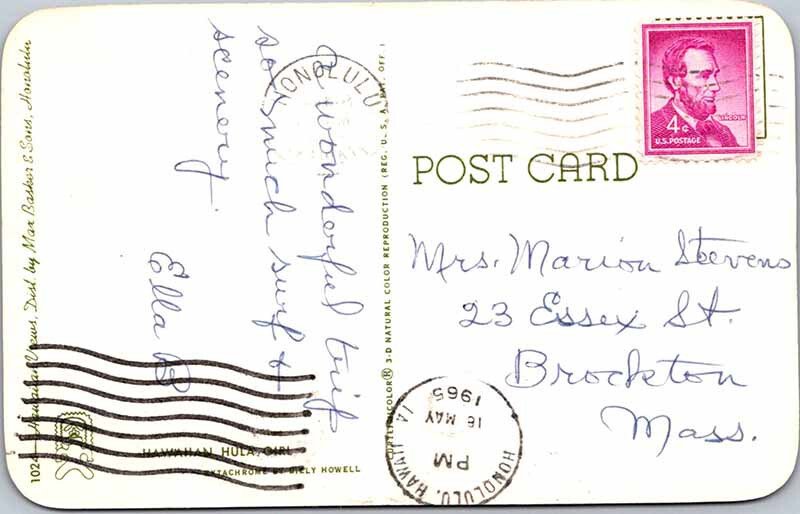 A wonderful trip
so much surf &
scenery.
Ella B
HONOLULU
4¢
LINCOLN
U.S. POSTAGE
POST CARD
Mrs. Marion Stevens
23 Essex St.
Brockton
Mass.
HONOLULU, HAWAII
PM
18 MAY
1965
3-D NATURAL COLOR REPRODUCTION (REG. U. S. A. PAT. OFF.)
Hawaiian Views, Dist. by Max Basker & Sons, Honolulu
HAWAIIAN HULA GIRL
EKTACHROME BY BILLY HOWELL